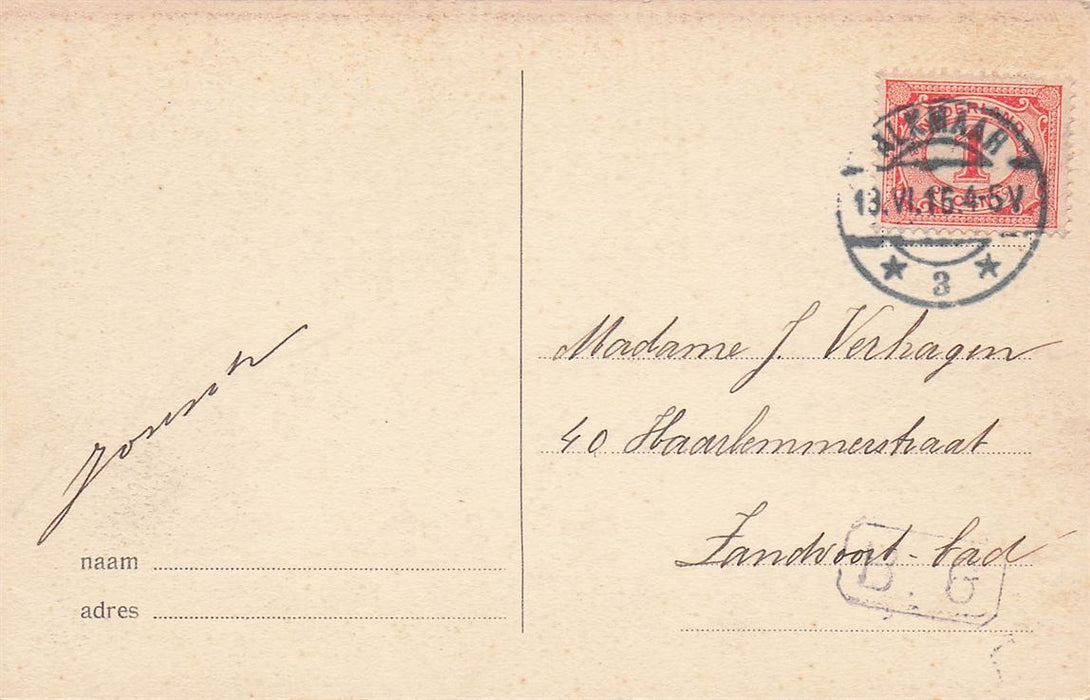 NEDERLAND
1
CENT
ALKMAAR
13.VI.16.4-5V
3
Madame J. Verhagen
40 Haarlemmerstraat
Zandvoort-bad
B.G
naam
adres